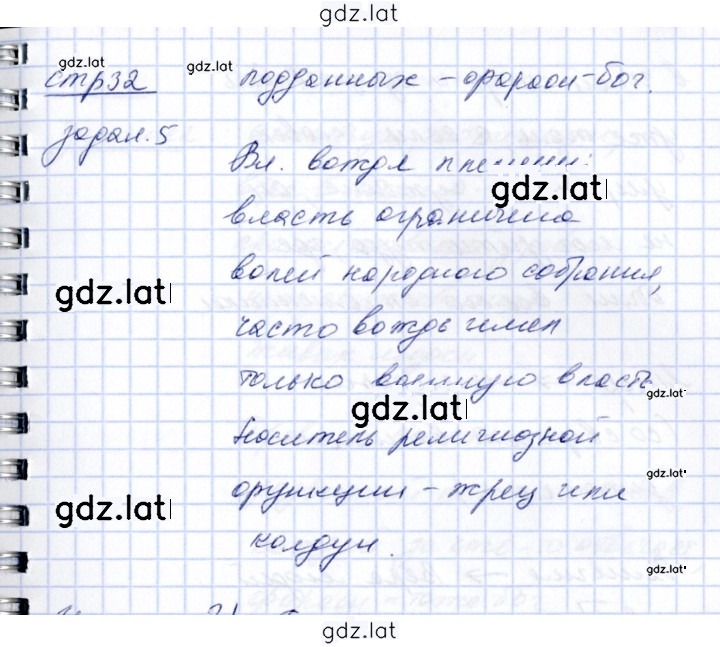 gdz.lat
gdz.lat
gdz.lat
стр32
подданных - фараон-бог.
задан. 5
Вл. вождя
gdz.lat
власть ограничена
волей народного собрания,
gdz.lat
часто вождь имел
только военную власть
gdz.lat
gdz.lat
Носитель религиозной
gdz.lat
функции - жрец или
gdz.lat
колдун.
gdz.lat
gdz.lat